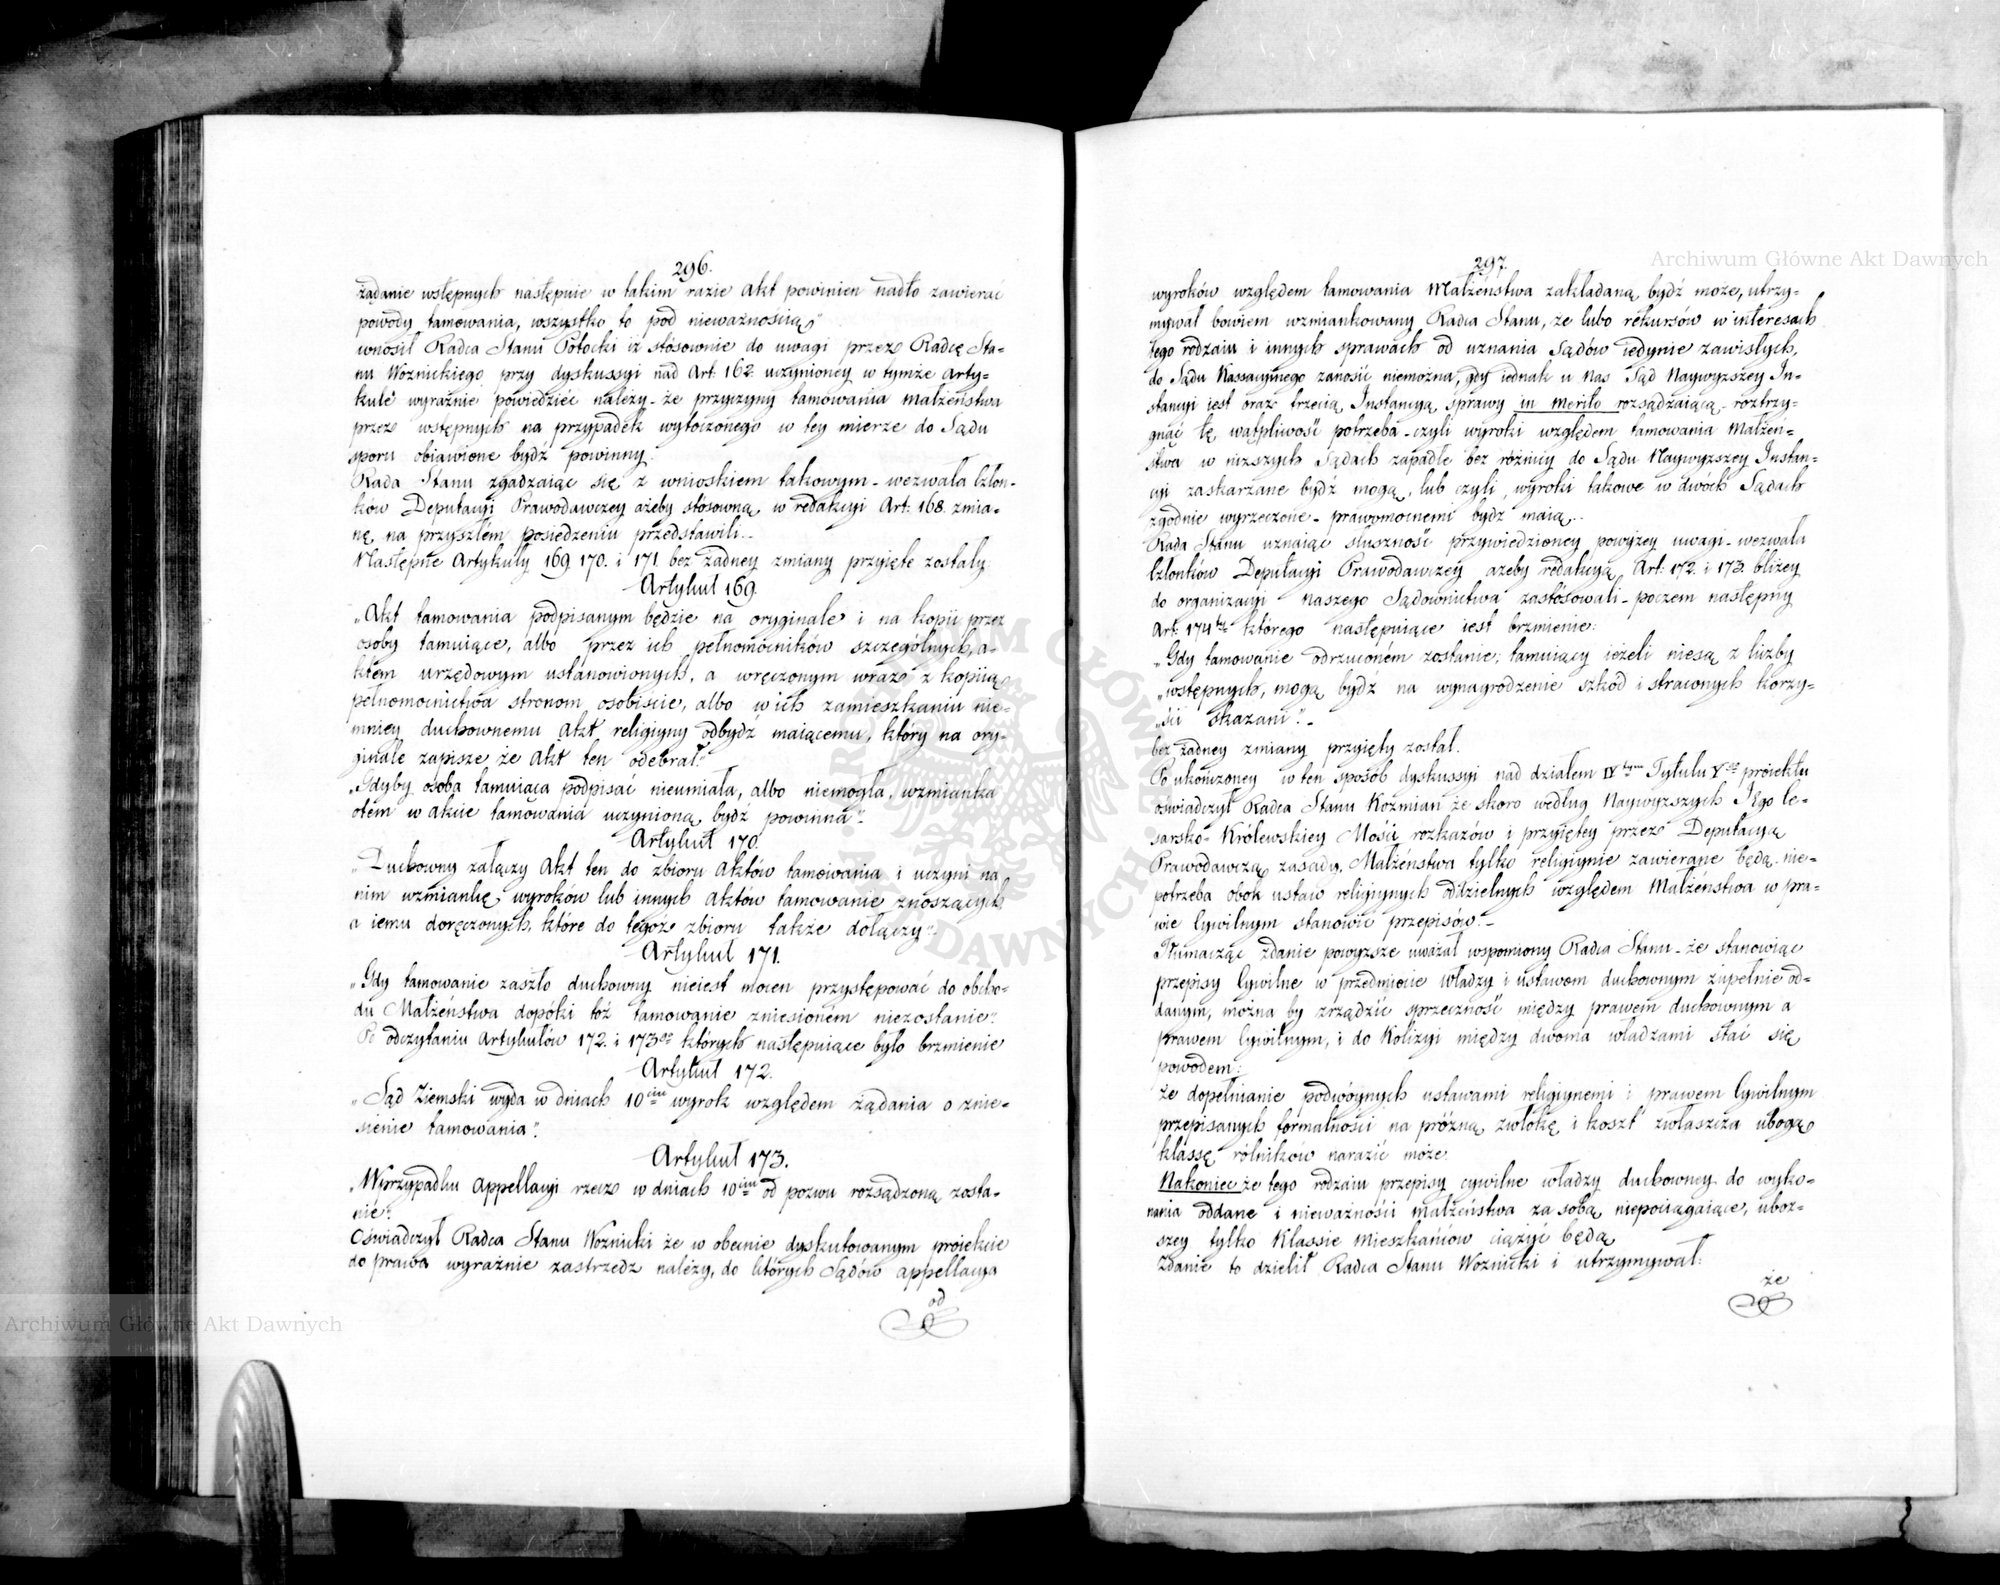 296.
żądanie wstępnych następuie w takim razie Akt powinien nadto zawierać
powody tamowania, wszystko to pod nieważnością"
wnosił Radca Stanu Potocki iż stósownie do uwagi przez Radcę Sta-
nu Woznickiego przy dyskussyi nad Art: 162. uczynioney w tymże Arty-
kule wyraźnie powiedzieć należy - że przyczyny tamowania małżeństwa
przez wstępnych na przypadek wytoczonego w tey mierze do Sądu
sporu obiawione bydź powinny.
Rada Stanu zgadzaiąc się z wnioskiem takowym - wezwała Człon-
ków Deputacyi Prawodawczey ażeby stósowną w redakcyi Art: 168. zmia-
nę na przyszłém posiedzeniu przedstawili. -
Następne Artykuły 169. 170. i 171. bez żadney zmiany przyięte zostały
Artykuł 169.
„Akt tamowania podpisanym będzie na oryginale i na kopii przez
osoby tamuiące, albo przez ich pełnomocników szczególnych, a-
ktem urzędowym ustanowionych, a wręczonym wraz z kopiią
pełnomocnictwa stronom osobiście, albo w ich zamieszkaniu nie-
mniey duchownemu akt religiyny odbydź maiącemu, który na ory-
ginale zapisze że Akt ten odebrał."
„Gdyby osoba tamuiąca podpisać nieumiała, albo niemogła, wzmianka
otém w akcie tamowania uczynioną bydź powinna".
Artykuł 170.
„Duchowny załączy Akt ten do zbioru Aktów tamowania i uczyni na
nim wzmiankę wyroków lub innych Aktów tamowanie znoszących
a iemu doręczonych, które do tegoż zbioru także dołączy".
Artykuł 171.
„Gdy tamowanie zaszło duchowny nieiest mocen przystępować do obcho-
du Małżeństwa dopóki toż tamowanie zniesionem niezostanie".
Po odczytaniu Artykułów 172. i 173go których następuiące było brzmienie
Artykuł 172.
„Sąd Ziemski wyda w dniach 10ciu wyrok względem żądania o znie-
sienie tamowania".
Artykuł 173.
„W przypadku appellacyi rzecz w dniach 10ciu od pozwu rozsądzoną zosta-
nie".
Oświadczył Radca Stanu Woznicki że w obecnie dyskutowanym proiekcie
do prawa wyraźnie zastrzedz należy, do których Sądów appellacya
od
297.
wyroków względem tamowania Małżeństwa zakładaną bydź może, utrzy-
mywał bowiem wzmiankowany Radca Stanu, że lubo rekursów w interesach
tego rodzaiu i innych sprawach od uznania Sądów iedynie zawisłych,
do Sądu Kassacyinego zanosić niemożna, gdy iednak u nas Sąd Naywyższey In-
stancyi iest oraz trzecią Instancyą sprawy in merito rozsądzaiącą - roztrzy-
gnąć tę wątpliwość potrzeba - czyli wyroki względem tamowania Małżeń-
stwa w niższych Sądach zapadłe bez różnicy do Sądu Naywyższey Instan-
cyi zaskarżane bydź mogą, lub czyli wyroki takowe w dwóch Sądach
zgodnie wyrzeczone - prawomocnemi bydź maią.
Rada Stanu uznaiąc słuszność przywiedzioney powyżey uwagi - wezwała
Członków Deputacyi Prawodawczey ażeby redakcyą Art: 172. i 173. bliżey
do organizacyi naszego Sądownictwa zastósowali - poczem następny
Art: 174ty którego następuiące iest brzmienie:
„Gdy tamowanie odrzuconém zostanie; tamuiący ieżeli niesą z liczby
„wstępnych, mogą bydź na wynagrodzenie szkód i straconych korzy-
„ści skazani". -
bez żadney zmiany przyięty został.
Po ukończoney w ten sposób dyskussyi nad działem IVtym Tytułu Vgo proiektu
oświadczył Radca Stanu Kozmian że skoro według Naywyższych Jego Ce-
sarsko-Królewskiey Mości rozkazów i przyiętey przez Deputacyą
Prawodawczą zasady, Małżeństwa tylko religiynie zawierane będą - nie-
potrzeba obok ustaw religiynych oddzielnych względem Małżeństwa w pra-
wie Cywilnym stanowić przepisów. -
Tłumacząc zdanie powyższe uważał wspomiony Radca Stanu - że stanowiąc
przepisy Cywilne w przedmiocie władzy i ustawom duchownym zupełnie od-
danym, można by zrządzić sprzeczność między prawem duchownym a
prawem Cywilnym, i do Kolizyi między dwoma władzami stać się
powodem:
że dopełnianie podwóynych ustawami religiynemi i prawem Cywilnym
przepisanych formalności na próżną zwłokę i koszt zwłaszcza ubogą
klassę rólników narazić może.
Nakoniec że tego rodzaiu przepisy cywilne władzy duchowney do wyko-
nania oddane i nieważności małżeństwa za sobą niepociągaiące, uboż-
szey tylko Klassie mieszkańców ciążyć będą
Zdanie to dzielił Radca Stanu Woznicki i utrzymywał:
że
Archiwum Główne Akt Dawnych
Archiwum Główne Akt Dawnych
ARCHIWUM GŁÓWNE AKT DAWNYCH